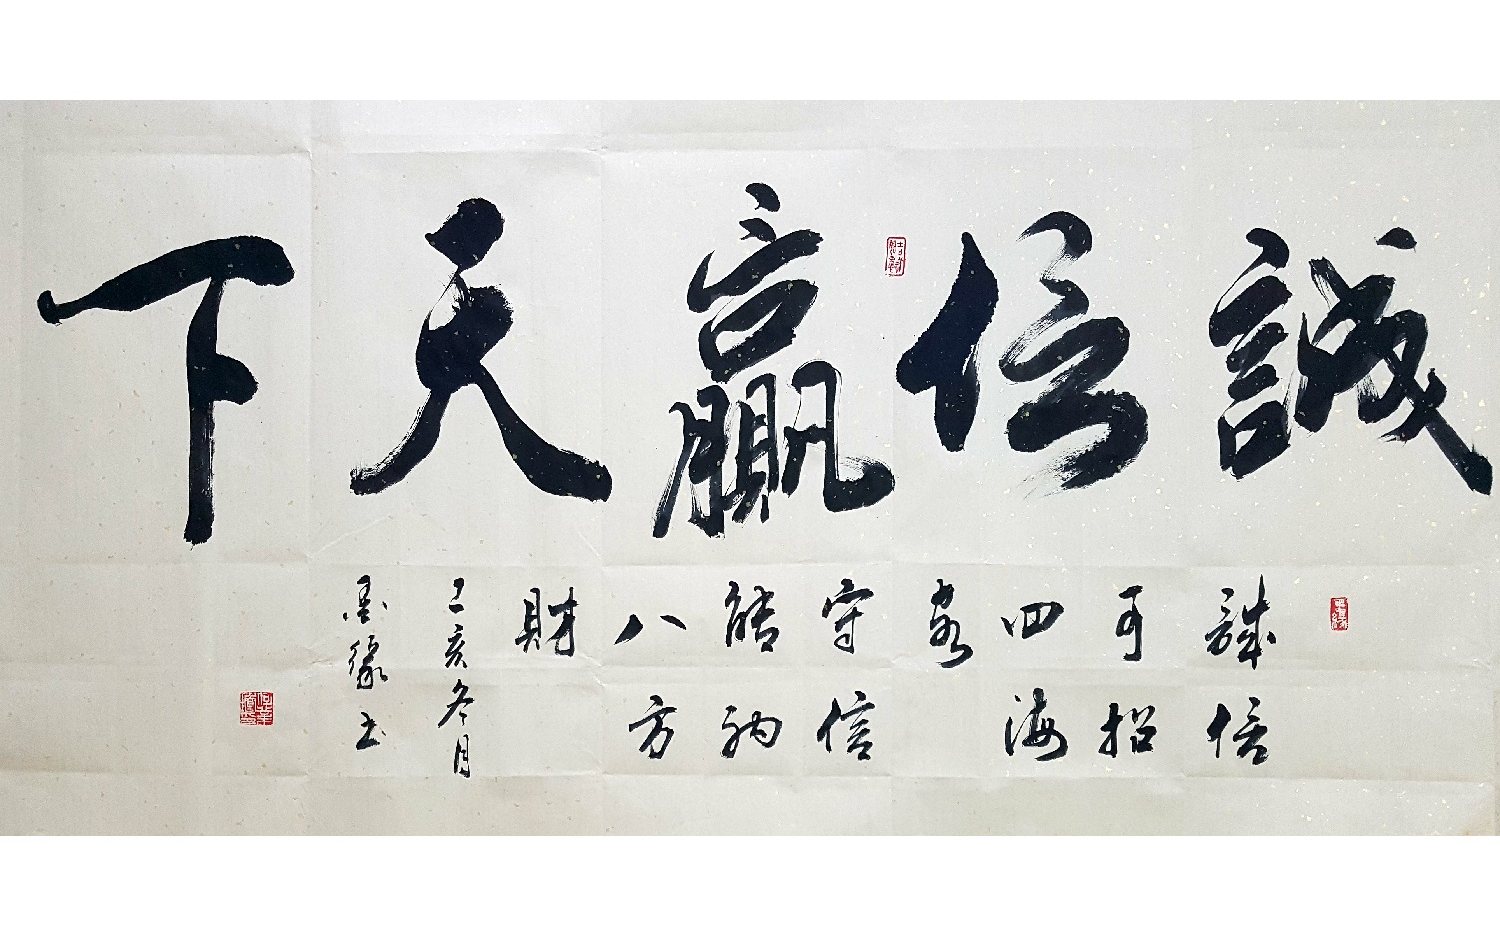 誠信贏天下
誠信
可招
四海
客
守信
能納
八方
財
己亥冬月
墨緣书